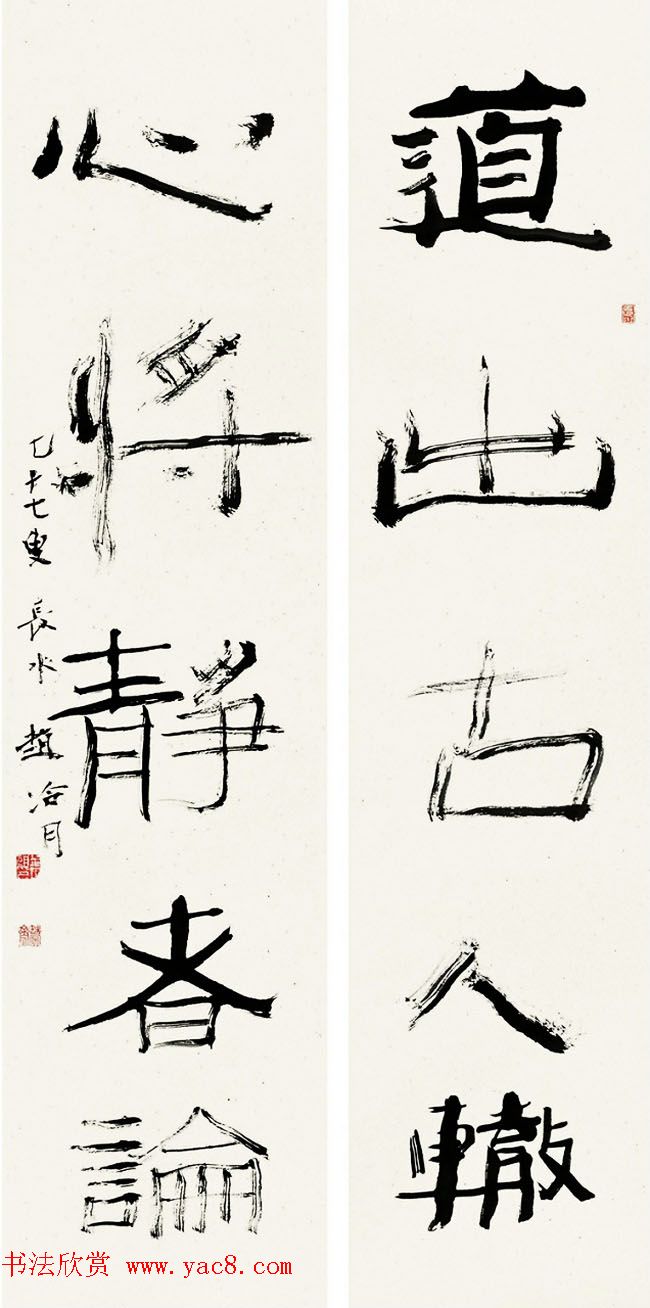 道出古人轍
心將靜者論
七十七叟 長水 趙冷月
书法欣赏 www.yac8.com